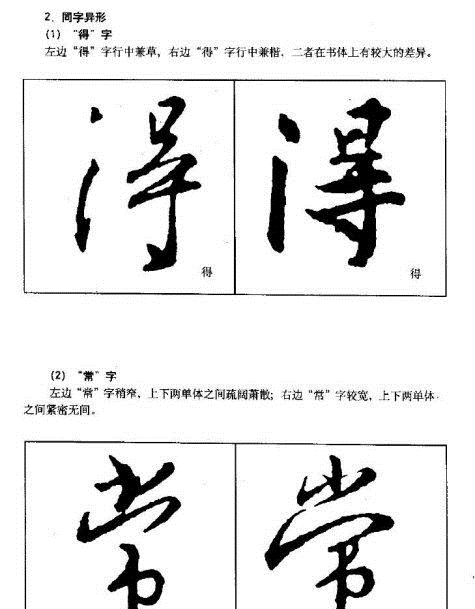 2. 同字异形
(1) “得”字
左边“得”字行中兼草，右边“得”字行中兼楷，二者在书体上有较大的差异。
得 得
得 得
(2) “常”字
左边“常”字稍窄，上下两单体之间疏阔萧散；右边“常”字较宽，上下两单体
之间紧密无间。
常 常